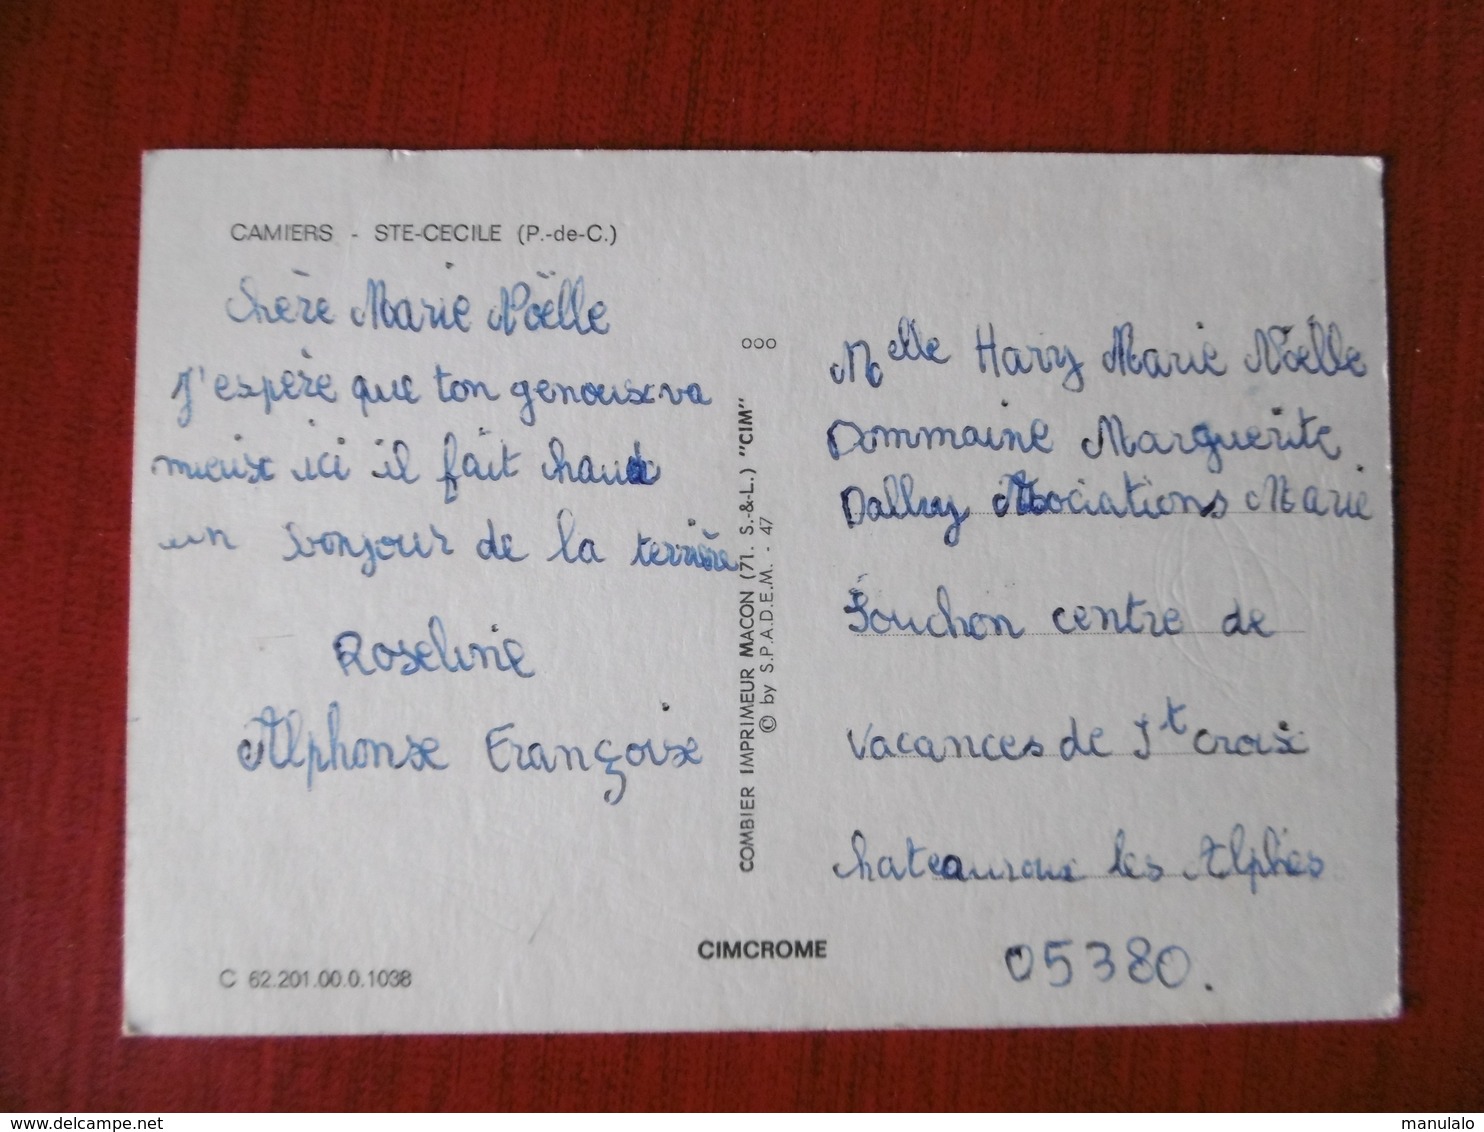 CAMIERS - STE-CECILE (P.-de-C.)
Chère Marie Noëlle
J'espère que ton genoux va
mieux ici il fait chaud
un bonjour de la terrière
Roseline
Alphonse Françoise
C 62.201.00.0.1038
COMBIER IMPRIMEUR MACON (71. S.-&-L.) "CIM"
© by S.P.A.D.E.M. - 47
CIMCROME
Melle Harry Marie Noëlle
Dommaine Marguerite
Associations Marie
Souchon centre de
vacances de St croix
chateauroux les Alphes
05380.
delcampe.net
manulalo